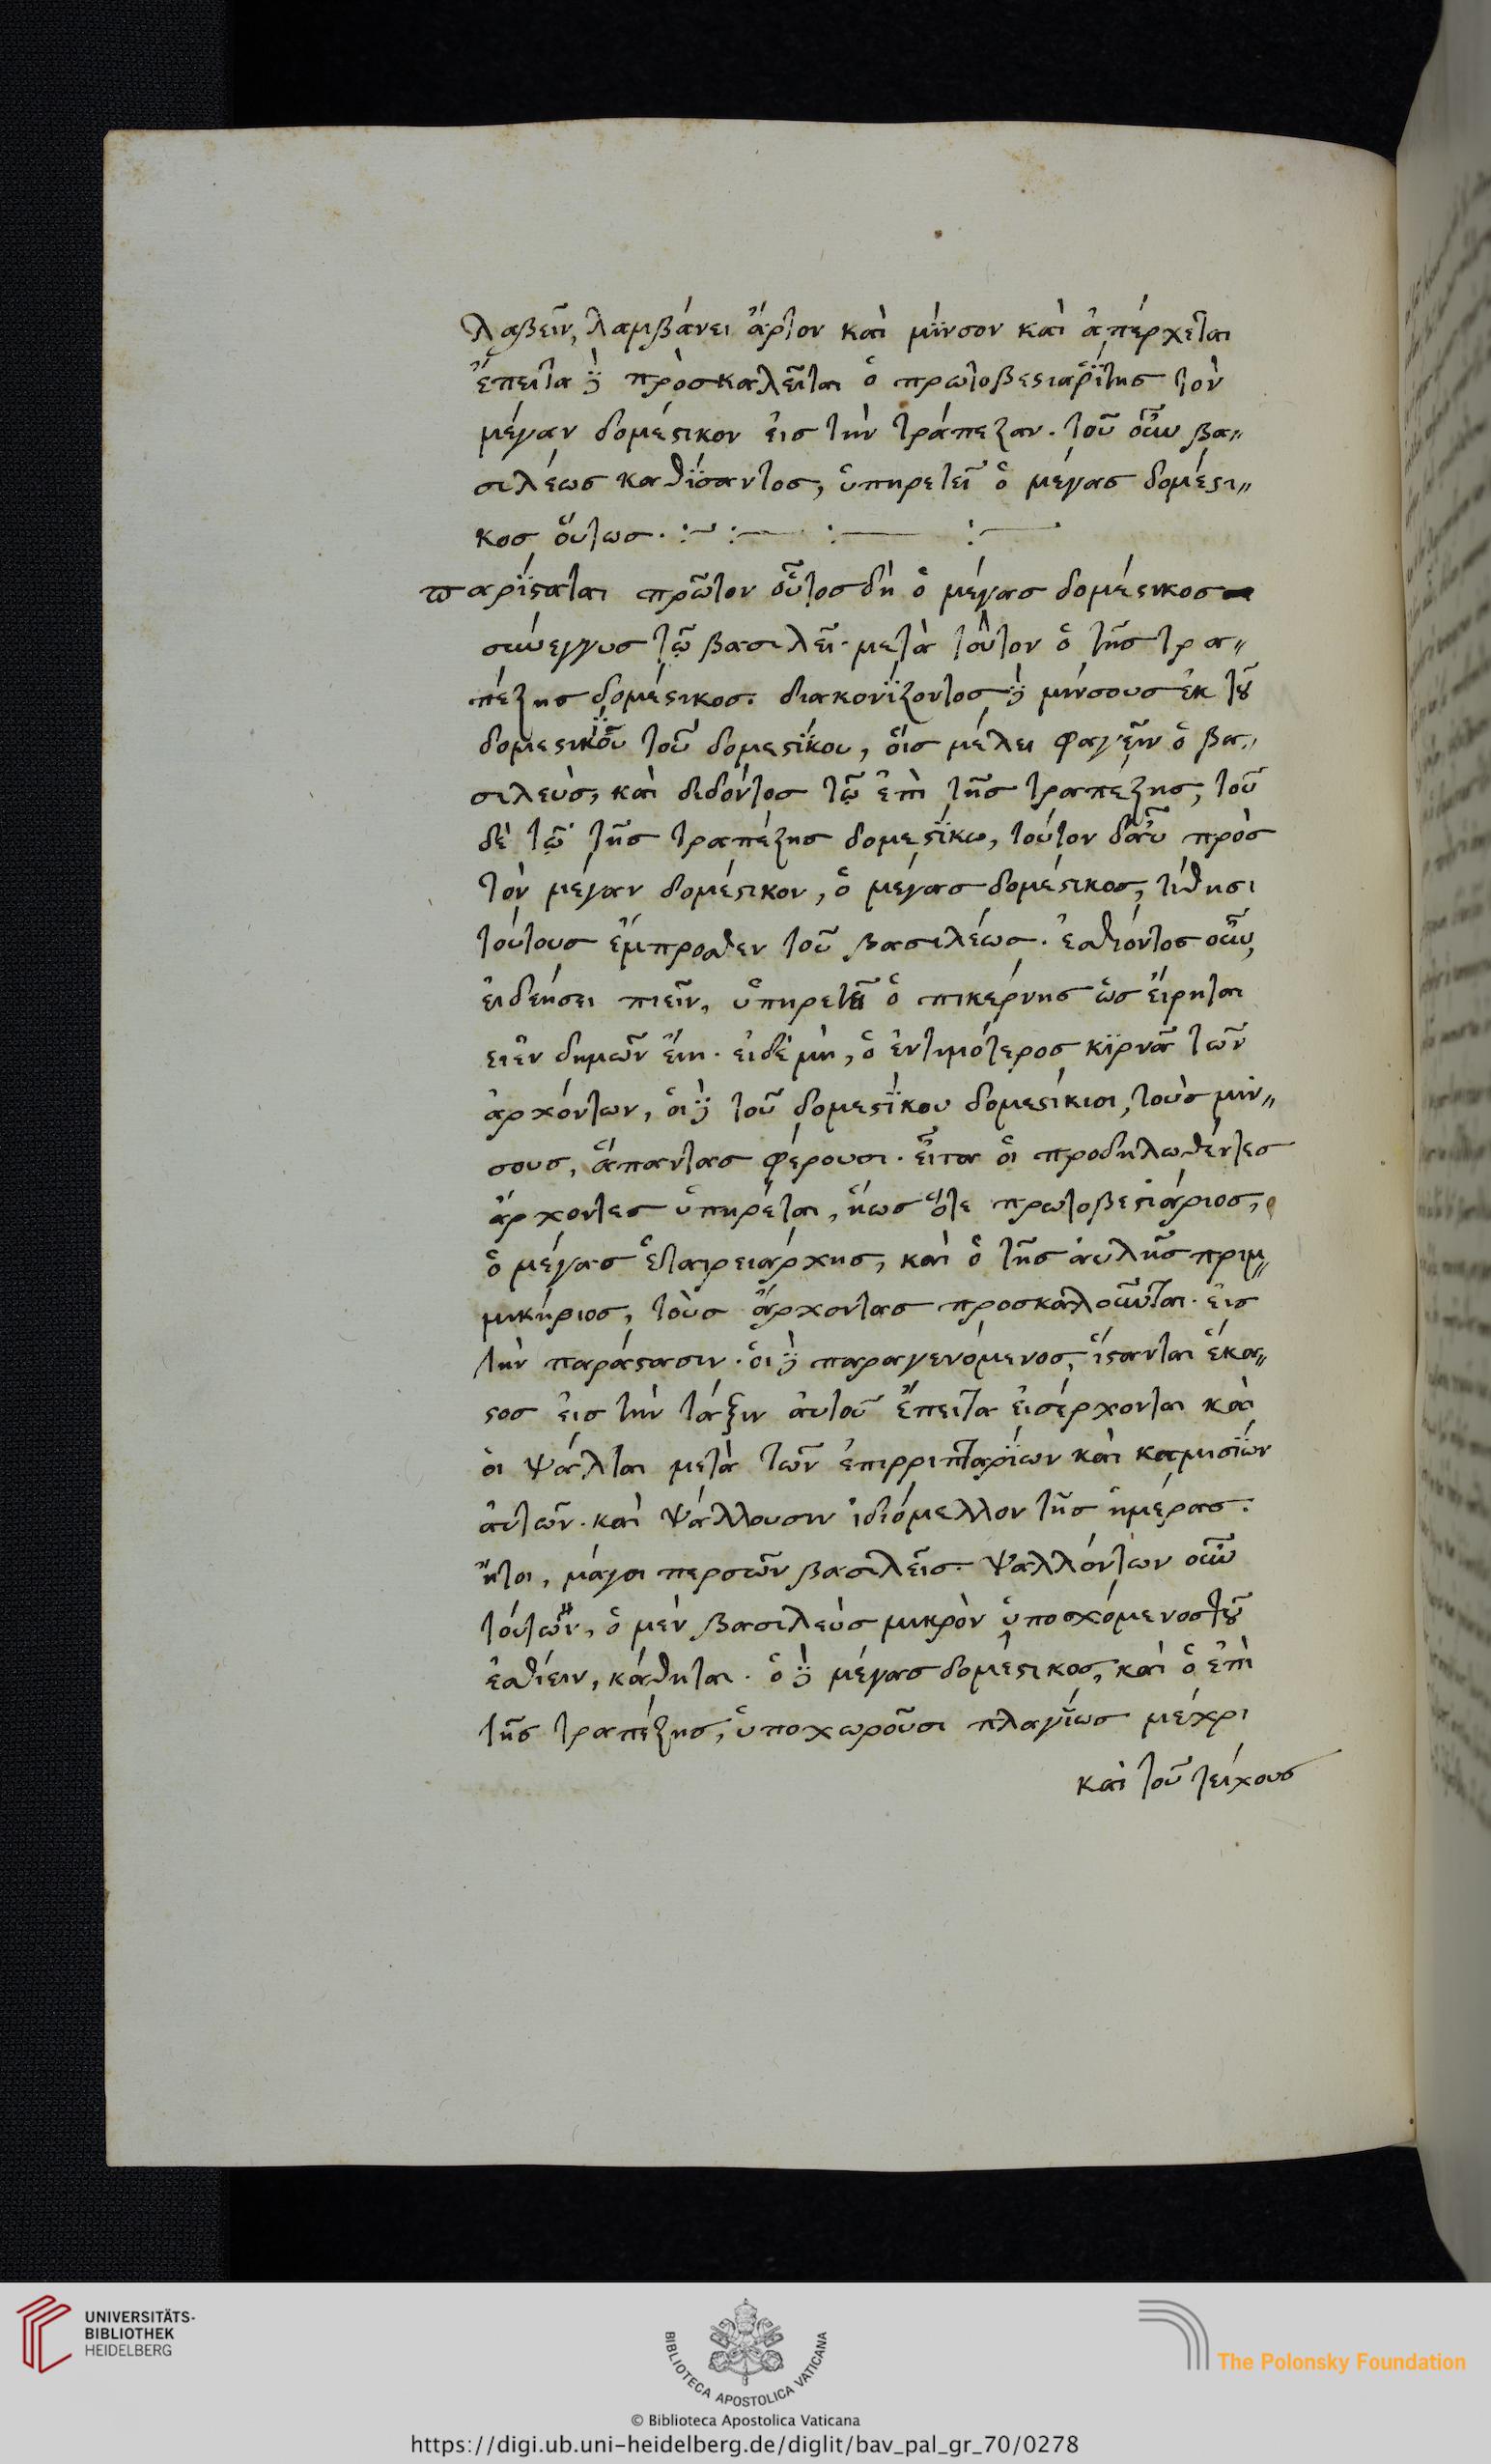 λαβεῖν, λαμβάνει ἄρτον καὶ μίνσον καὶ ἀπέρχεται
ἔπειτα δὲ πρὸσκαλεῖται ὁ πρωτοβεστιαρΐτης τὸν
μέγαν δομέστικον εἰς τὴν τράπεζαν. τοῦ οὖν βα〃
σιλέως καθΐσαντος, ὑπηρετεῖ ὁ μέγας δομέστι〃
κος ὅυτως. :~ :— :— :—
παρίσταται πρῶτον οὗτος δὴ ὁ μέγας δομέστικος
σύνεγγυς τῷ βασιλεῖ· μετὰ τοῦτον ὁ τῆς τρα〃
πέζης δομέστικος. διακονΐζοντος δὲ μίνσους ἐκ τοῦ
δομεστικΐου τοῦ δομεστίκου, ὅις μέλει φαγεῖν ὁ βα〃
σιλεὺς, καὶ διδόντος τῷ ἐπὶ τῆς τραπέζης, τοῦ
δὲ τῷ τῆς τραπέζης δομεστΐκω, τούτον δ'αὖ πρὸς
τὸν μέγαν δομέστικον, ὁ μέγας δομέστικος, τίθησι
τούτους ἔμπροσθεν τοῦ βασιλέως. ἐσθιόντος οὖν,
εἰ δεήσει πιεῖν, ὑπηρετεῖ ὁ πικέρνης ὡς ἔιρηται
ει ἐν δημῶν ἔιη. εἰ δὲ μὴ, ὁ ἐντιμότερος κϊρνᾶ τῶν
ἀρχόντων, ὁι δὲ τοῦ δομεστΐκου δομεστίκιοι, τοὺς μίν〃
σους, ἅπαντας φέρουσι. εἶτα ὁι προδηλωθέντες
ἄρχοντες ὑπηρέται, ἥως ὅτε πρωτοβεστιάριος,
ὁ μέγας ἑταιρειάρχης, καὶ ὁ τῆς ἀυλῆς πριμ〃
μικήριος, τοὺς ἄρχοντας προσκαλοῦνται· εἰς
τὴν παράστασιν. ὁι δὲ παραγενόμενος, ἵστανται ἕκα〃
στος εἰς τὴν τάξιν ἀυτοῦ ἔπειτα εἰσέρχονται καὶ
ὁι ψάλται μετὰ τῶν ἐπιρριπταρΐων καὶ καμισΐων
ἀυτῶν. καὶ ψάλλουσιν ἰδιόμελλον τῆς ἡμέρας.
ἤτοι, μάγοι περσῶν βασιλεῖς. ψαλλόντων οὖν
τόυτων, ὁ μὲν βασιλεὺς μικρὸν ὑποσχόμενος τοῦ
ἐσθίειν, κάθηται. ὁ δὲ μέγας δομέστικος, καὶ ὁ ἐπὶ
τῆς τραπέζης, ὑποχωροῦσι πλαγΐως μέχρι
καὶ τοῦ τείχους
UNIVERSITÄTS-
BIBLIOTHEK
HEIDELBERG
BIBLIOTECA APOSTOLICA VATICANA
The Polonsky Foundation
© Biblioteca Apostolica Vaticana
https://digi.ub.uni-heidelberg.de/diglit/bav_pal_gr_70/0278